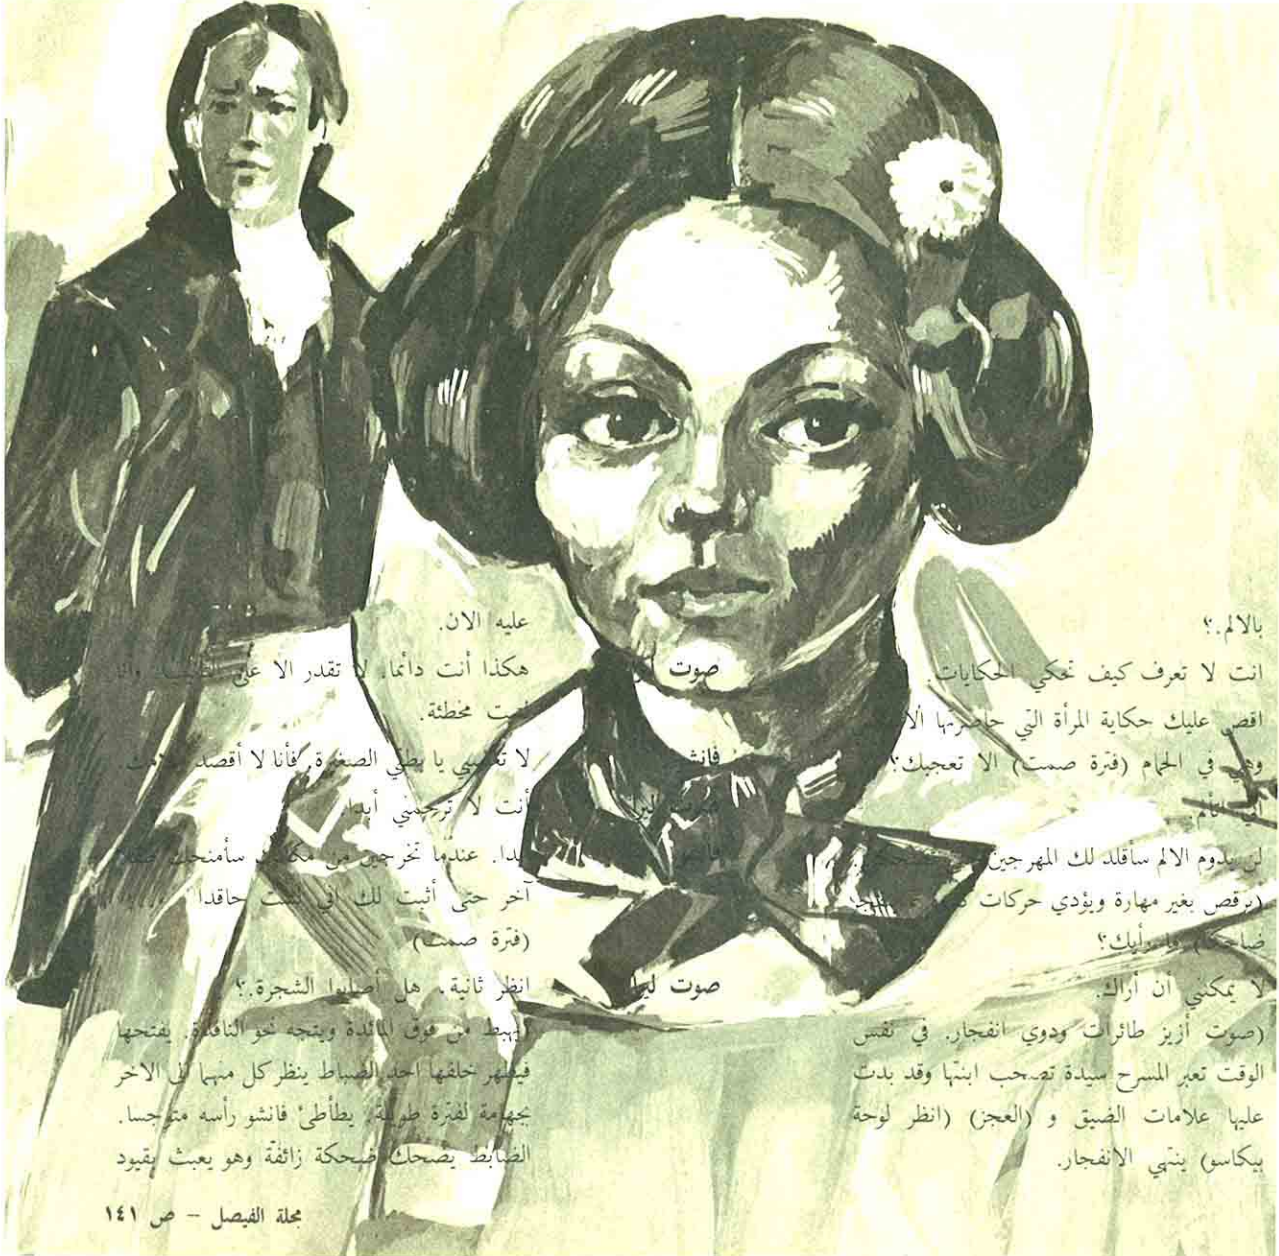 بالالم.؟
انت لا تعرف كيف تحكي الحكايات.
اقص عليك حكاية المرأة التي حاصرتها
وهي في الحمام (فترة صمت) الا تعجبك؟
لن يدوم الالم سأقلد لك المهرجين
(يرقص بغير مهارة ويؤدي حركات
ضاحكا) ما رأيك؟
لا يمكنني أن أراك.
(صوت أزيز طائرات ودوي انفجار. في نفس
الوقت تعبر المسرح سيدة تصحب ابنتها وقد بدت
عليها علامات الضيق و (العجز) (انظر لوحة
بيكاسو) ينتهي الانفجار.
عليه الان.
صوت
هكذا أنت دائما. لا تقدر الا على وانا
لست مخطئة.
فانشو
لا يا بطتي الصغيرة. فأنا لا أقصد
أنت لا ترحمني أبدا.
أبدا. عندما تخرجين من سأمنحك
آخر حتى أثبت لك اني لست حاقدا
(فترة صمت)
صوت ليرا
انظر ثانية. هل أصابوا الشجرة.؟
(يهبط من فوق المائدة ويتجه نحو النافذة. يفتحها
فيظهر خلفها احد الضباط ينظر كل منهما الى الاخر
بجهامة لفترة طويلة. يطأطئ فانشو رأسه متوجسا.
الضابط يضحك ضحكة زائفة وهو يعبث بقيود
مجلة الفيصل – ص ١٤١